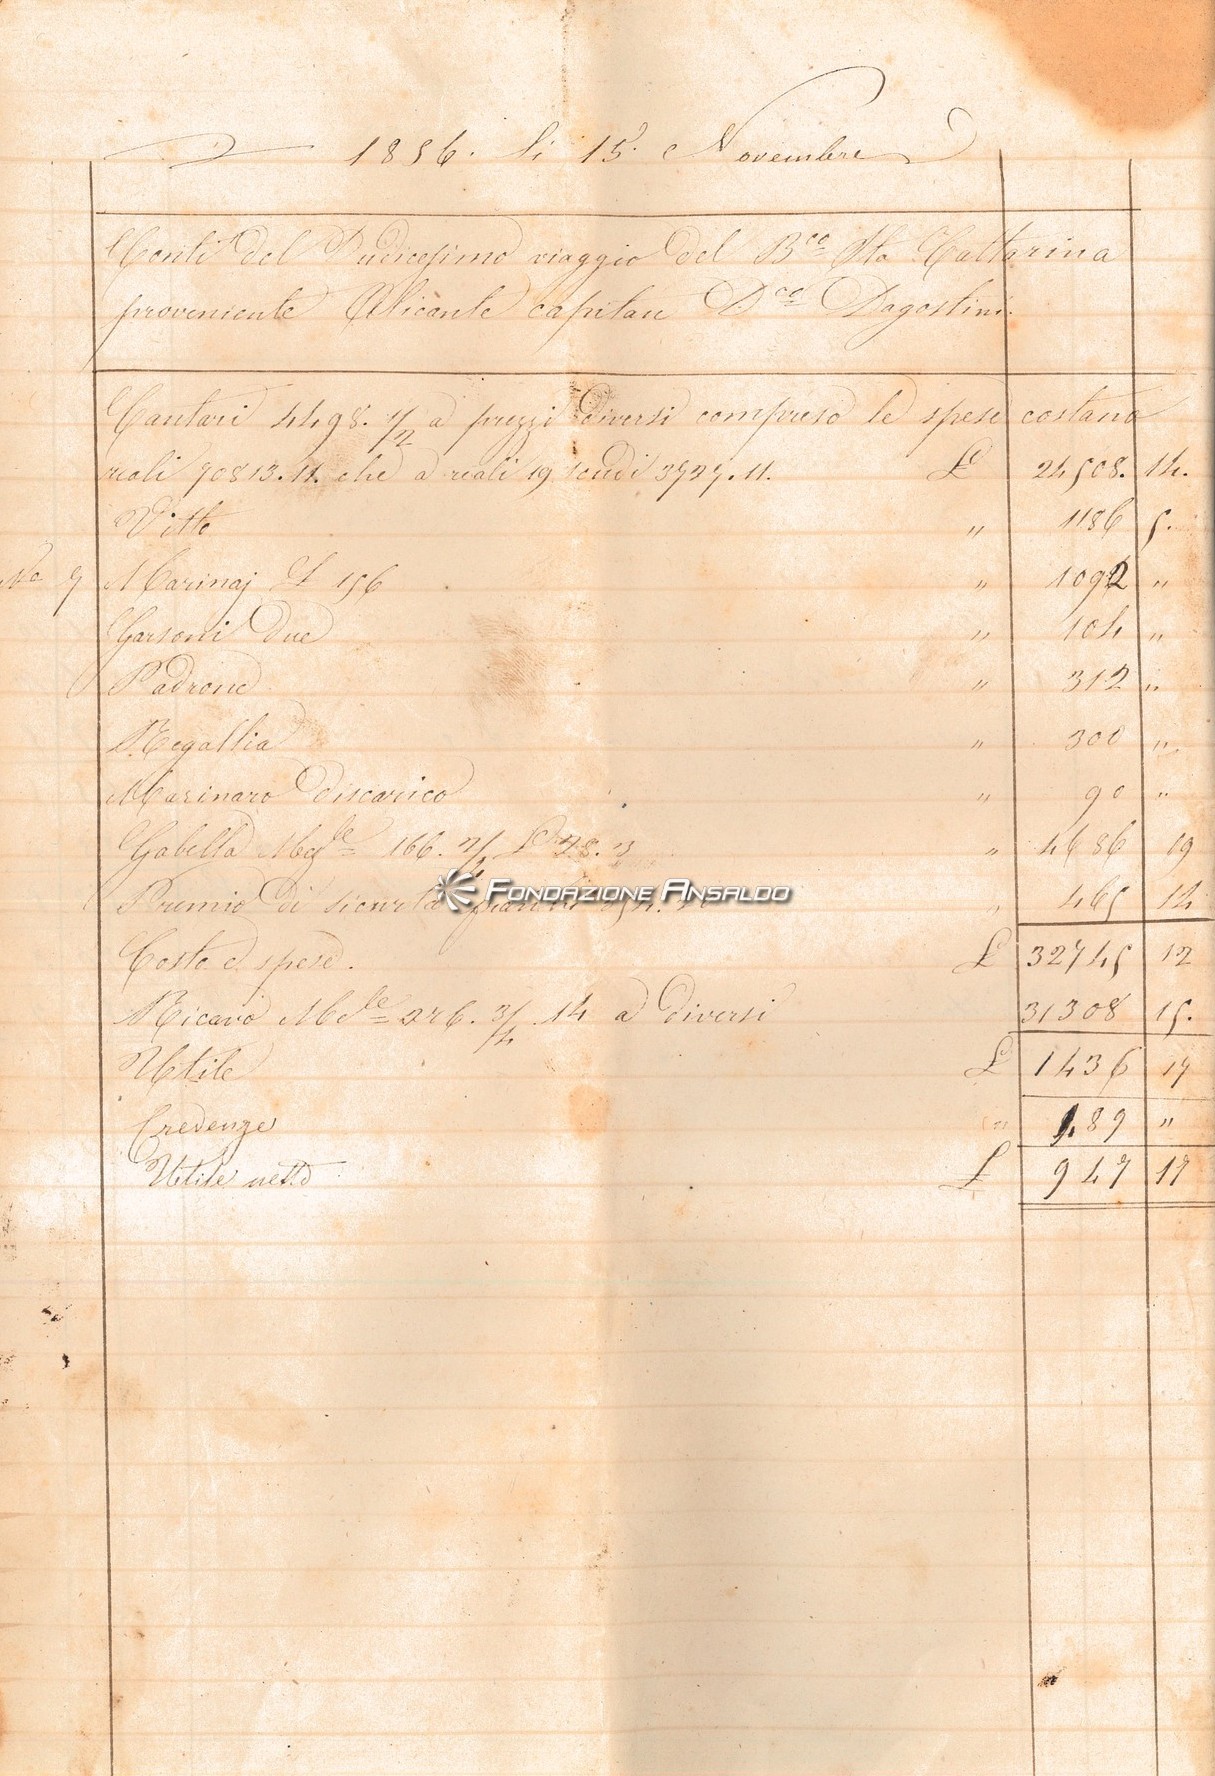 1856. li 15 Novembre
Conti del Pudicesimo viaggio del B.co Sta Cattarina
proveniente Alicante capitan D.co Dagostini.
Cantari 4498. 1/2 a prezzi diversi compreso le spese costano
reali 70813.11. che a reali 19 scudi 3727.11. £ 24508. 14.
Vitto " 1186 5.
No 7 Marinaj £ 156 " 1092 "
Garsoni due " 104 "
Padrone " 312 "
Regallia " 300 "
Marinaro discarico " 90 "
Gabella M.le 166. £ 28. 3 " 4686 19
FONDAZIONE ANSALDO
Premio di sicurtà " 465 14
Costo e spese. £ 32745 12
Ricavo M.le 276. 3/4 .14 a diversi 31308 15.
Utile £ 1436 17
Credenze " 489 "
Utile netto £ 947 17